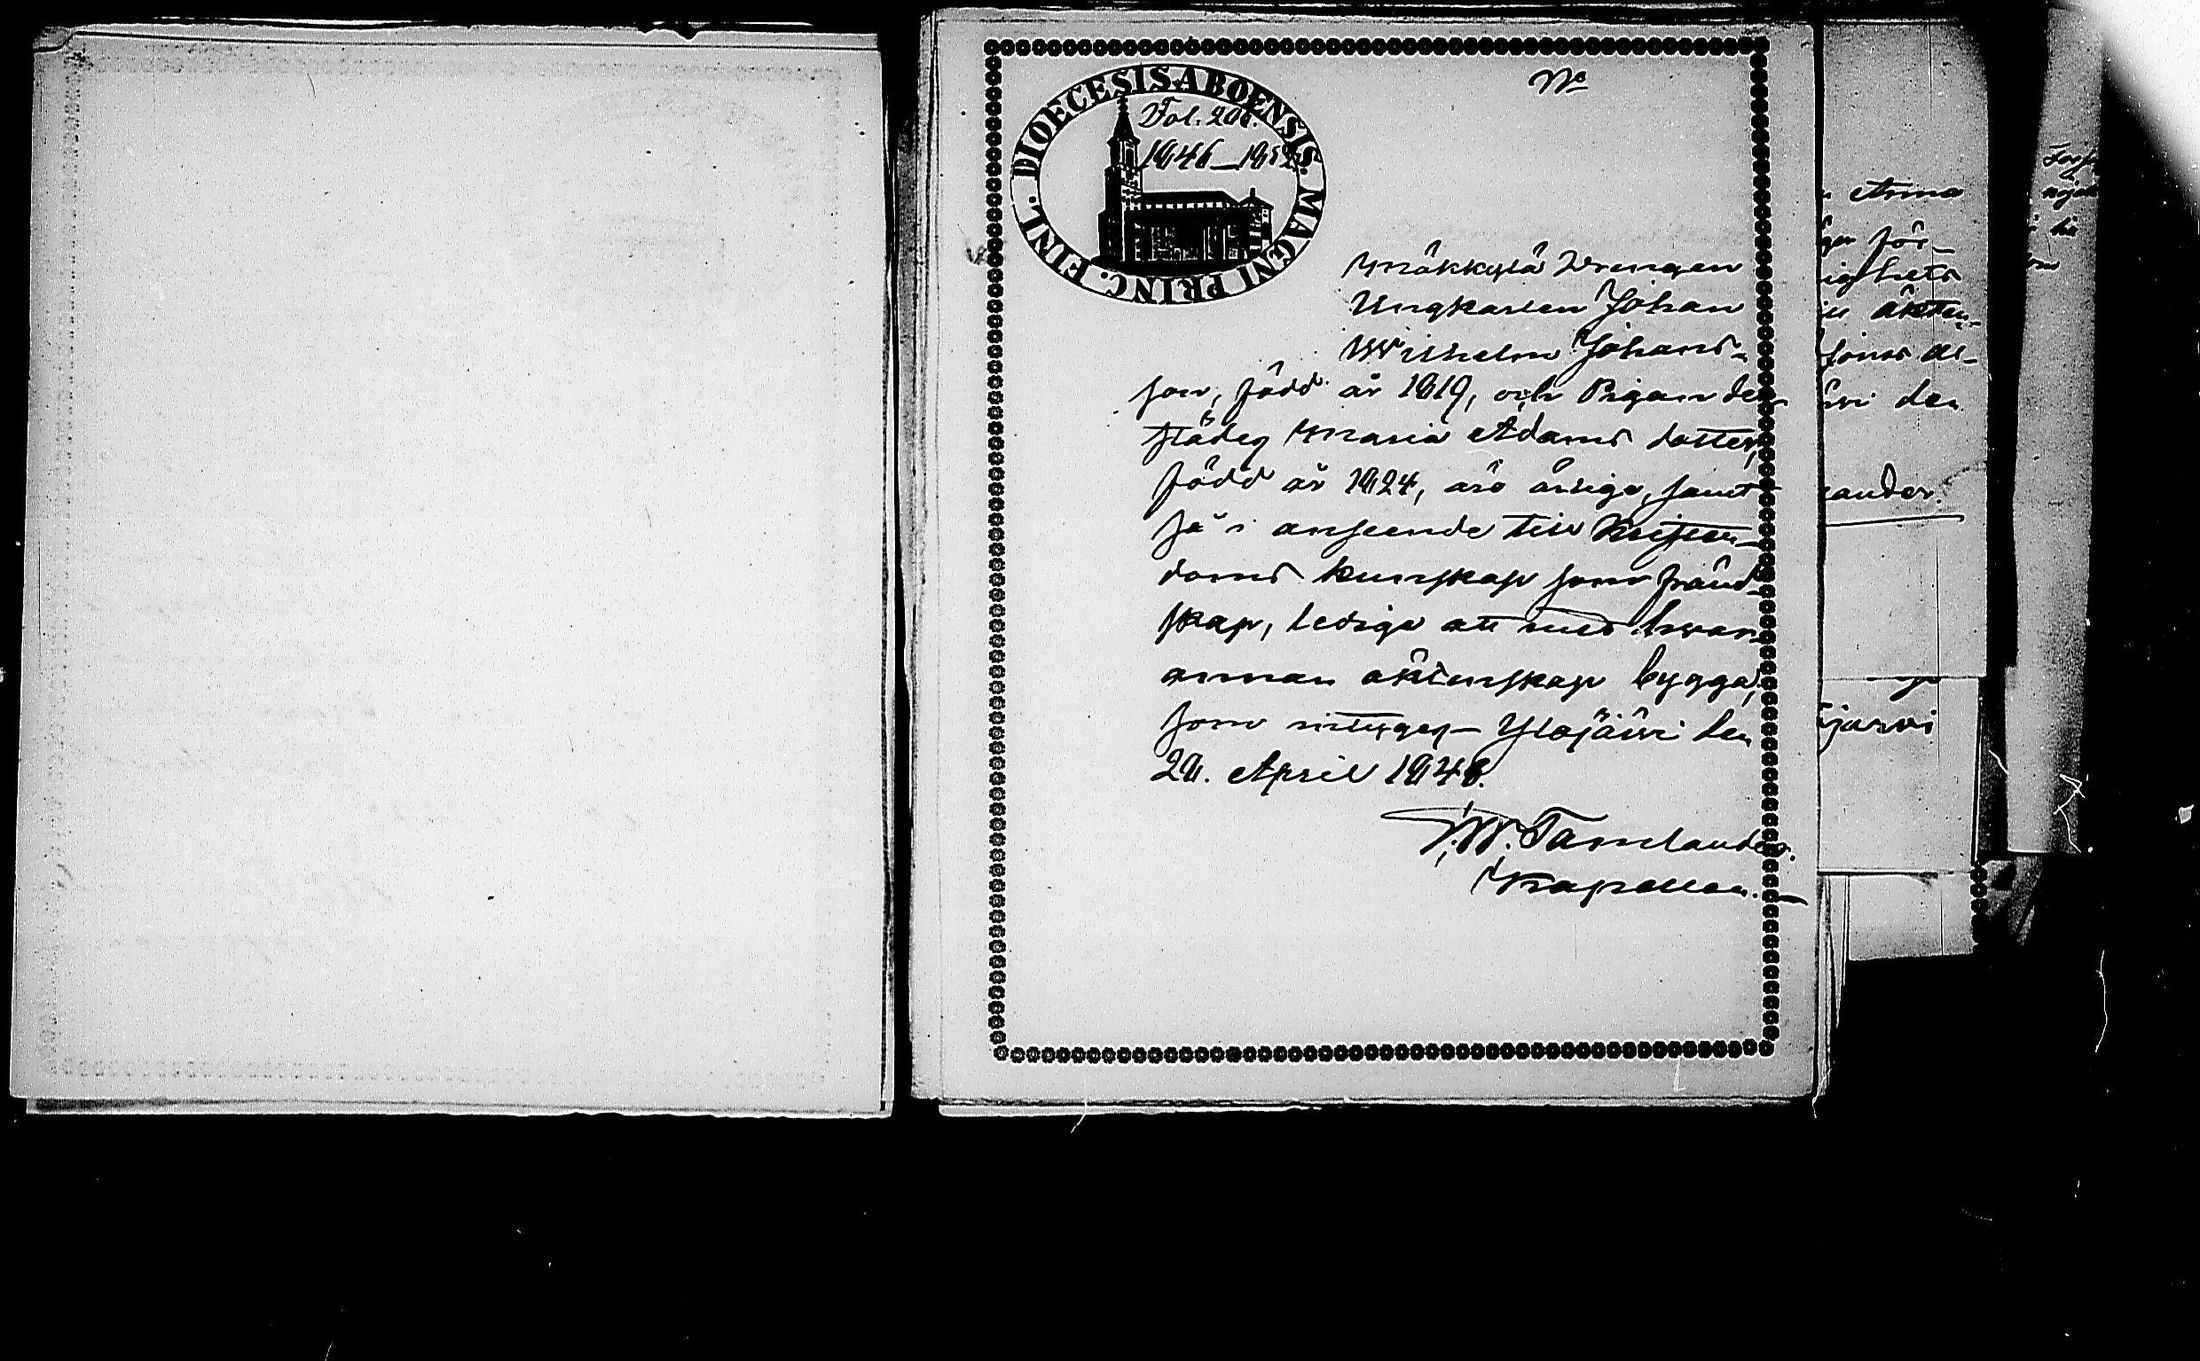 No
DIOECESIS ABOENSIS. MAGNI PRINC. FINL.
Fol. 208.
1846–1852
Mäkkylä Drengen
Ungkarlen Johan
Wilhelm Johans-
son, född år 1819, och Pigan der
städes Maria Adams dotter,
född år 1824, äro årliga, samt
så i anseende till Kristen-
doms kunskap som fränd-
skap, lediga att med hvar-
annan äktenskap bygga,
som intygas Ylöjärvi den
28. April 1848.
F. W. Tamlander.
Kapellan.
Anna
för-
äkten-
den
ander.
järvi